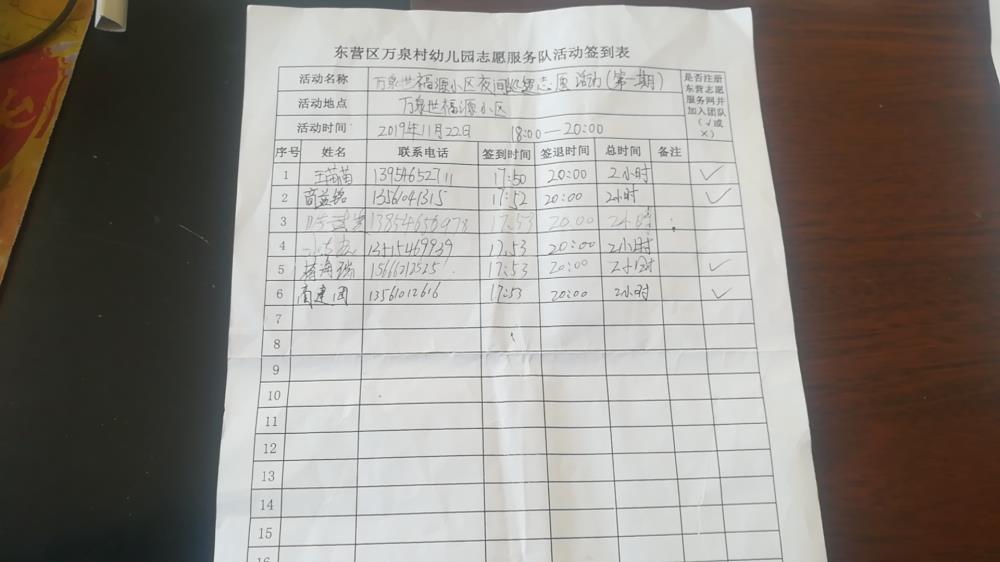 东营区万泉村幼儿园志愿服务队活动签到表
活动名称 万泉世福源小区夜间巡逻志愿活动(第一期)
是否注册
东营志愿
服务网并
加入团队
(√或
×)
活动地点 万泉世福源小区
活动时间 2019年11月22日 18:00—20:00
序号 姓名 联系电话 签到时间 签退时间 总时间 备注
1 王苗苗 13954652711 17:50 20:00 2小时 √
2 13561041315 17:52 20:00 2小时 √
3 17:53 20:00 2小时
4 13515469939 17:53 20:00 2小时
5 杨海瑞 15666212525 17:53 20:00 2小时 √
6 高建国 13561012616 17:53 20:00 2小时 √
7
8
9
10
11
12
13
14
15
16